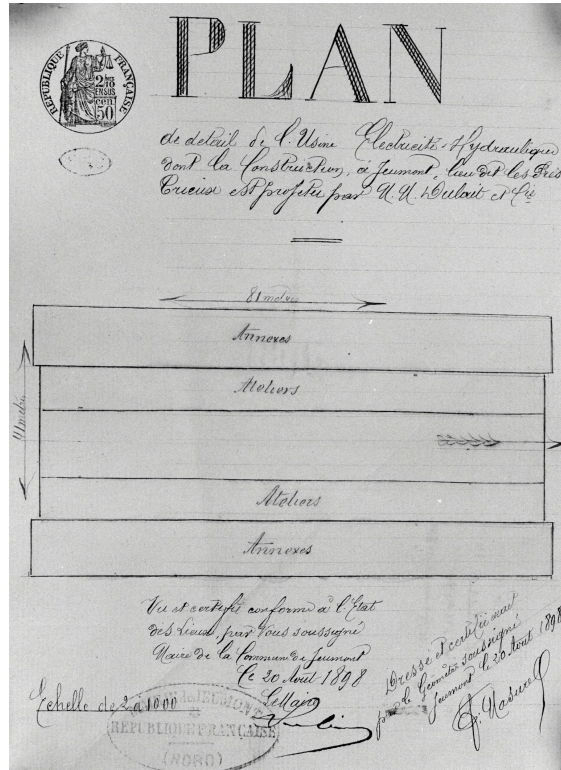 PLAN
RÉPUBLIQUE FRANÇAISE
2/10
EN SUS
cen
50
de détail de l'Usine Électricité-Hydraulique
dont la Construction, à Jeumont, lieu dit les Prés
est projetée par M. M. Dulait et Cie
81 mètres
Annexes
Ateliers
41 mètres
Ateliers
Annexes
Vu et certifié conforme à l'État
des Lieux, par Nous soussigné
Maire de la Commune de Jeumont
Ce 20 Août 1898
Le Maire
Echelle de 2 à 1000
MAIRIE de JEUMONT
RÉPUBLIQUE FRANÇAISE
(NORD)
Dressé et certifié exact
par le Géomètre soussigné
Jeumont le 20 Août 1898